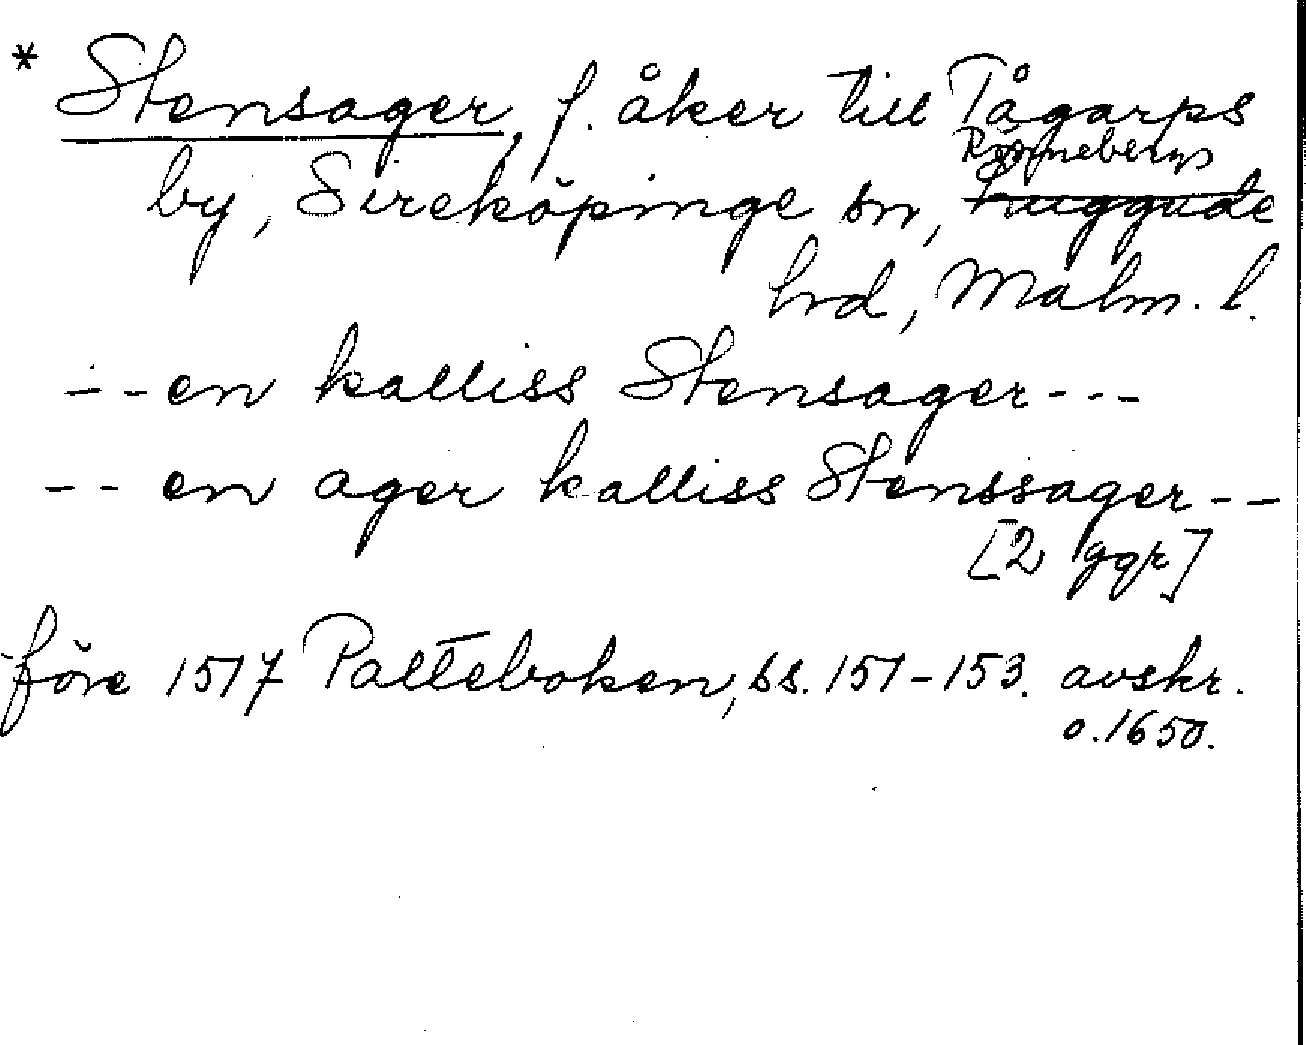 * Stensager, f. åker till Tågarps
Rönnebergs
by, Sireköpinge sn, Luggude
hrd, Malm. l.
- - en kalliss Stensager - - -
- - en ager kalliss Stenssager - -
[2 ggr]
före 1517 Palteboken, ss. 151-153. avskr.
o. 1650.